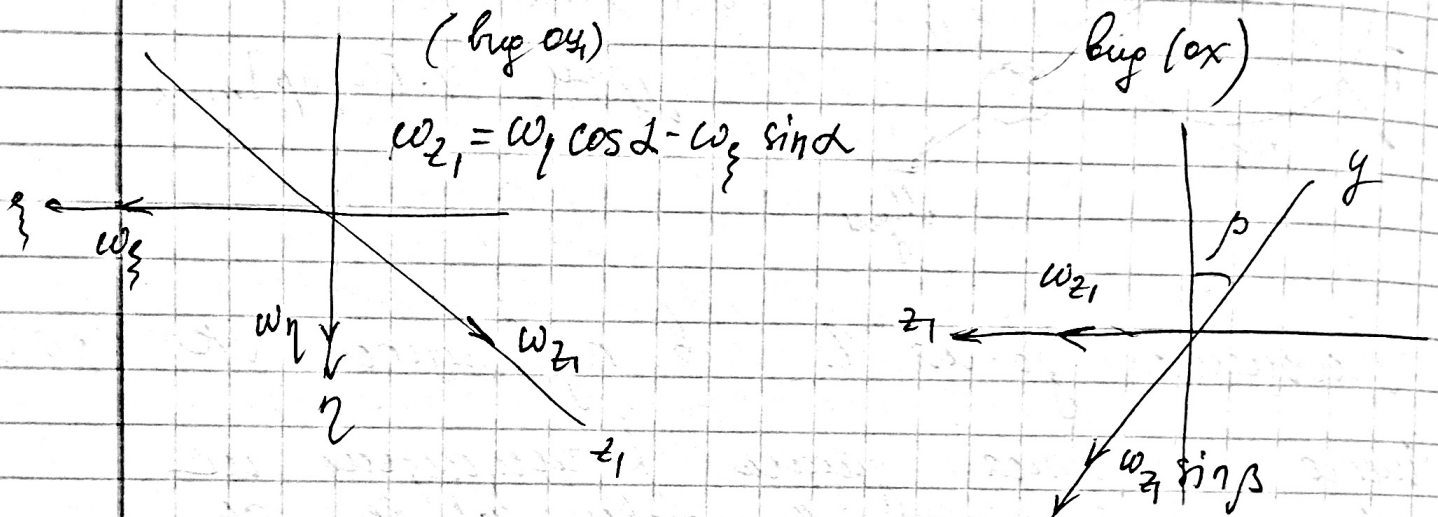 (вид oy₁)
вид (ox)
ω_{z₁} = ω_η cos α - ω_ξ sin α
ξ
ω_ξ
ω_η
η
ω_{z₁}
z₁
y
β
ω_{z₁}
z₁
ω_{z₁} sin β